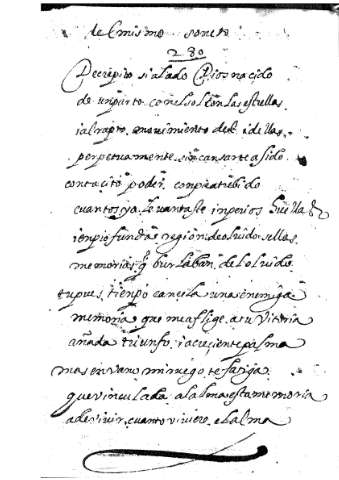 del mismo soneto
280
Decrepito si alado Dios nacido
de un parto con el sol con las estrellas
i al rapto movimiento del i dellas
perpetuamente sin cansarte asido
con tacito poder, con pie atrebido
cuantos ya levantaste inperios huella
i en pio region de olvido sellas
memorias q̃ burlaban del olvido
tu pues, tienpo cancela una enemiga
memoria que me aflige, a tu vitoria
añada triunfo, i acreciente palma
mas en vano mi ruego te fatiga
que vinculada al alma esta memoria
a de vivir, cuanto viviere el alma